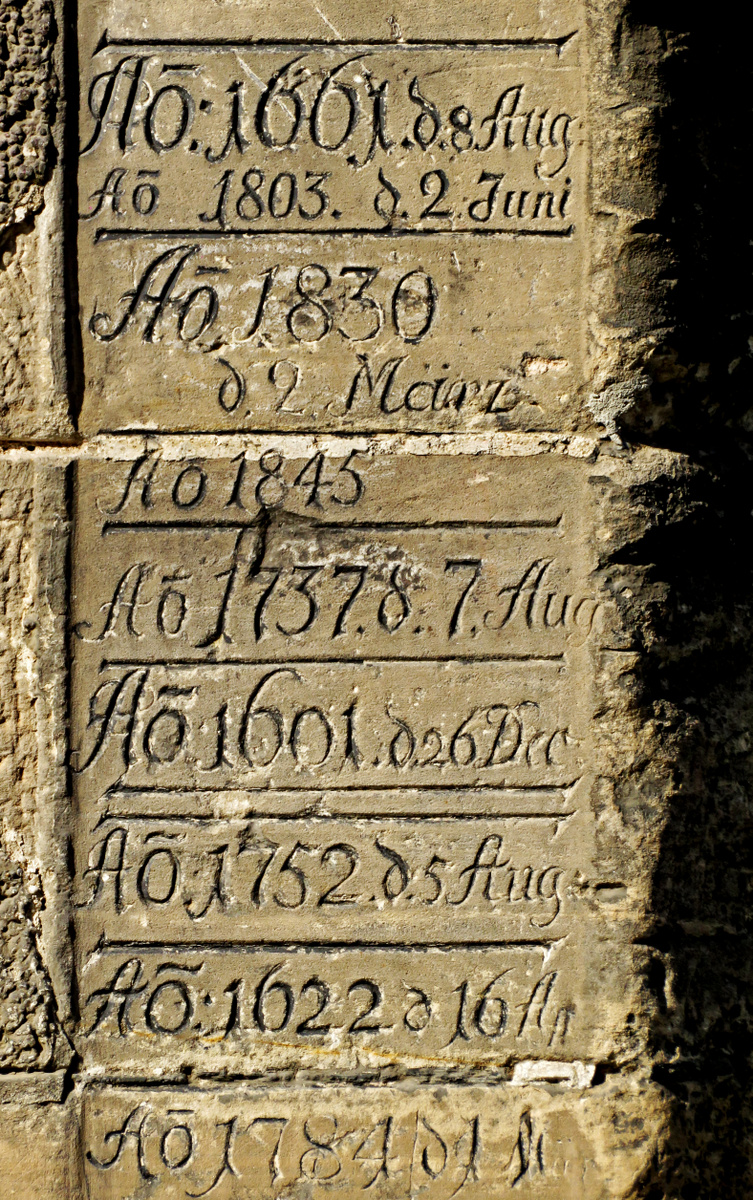 Aō: 1661. d. 8 Aug:
Aō 1803. d. 2. Juni
Aō 1830
d. 2. März
Aō 1845
Aō 1737. d. 7. Aug
Aō: 1601. d. 26 Dec:
Aō: 1752. d. 5 Aug:
Aō: 1622 d 16 Ap
Aō 1784 d 1